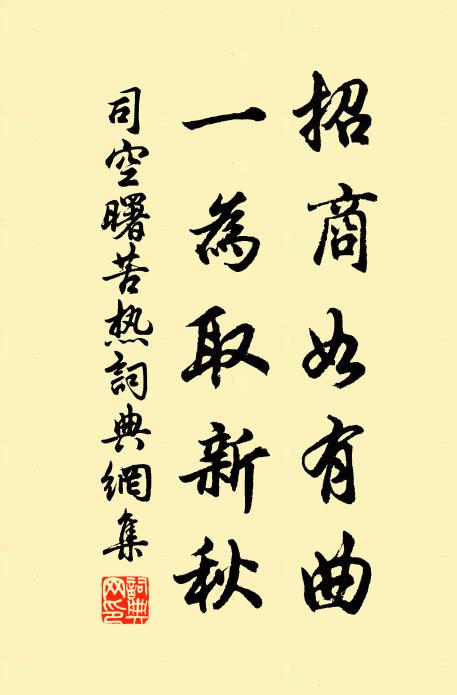 招商如有曲
一為取新秋
司空曙苦热詞典網集
詞典網印